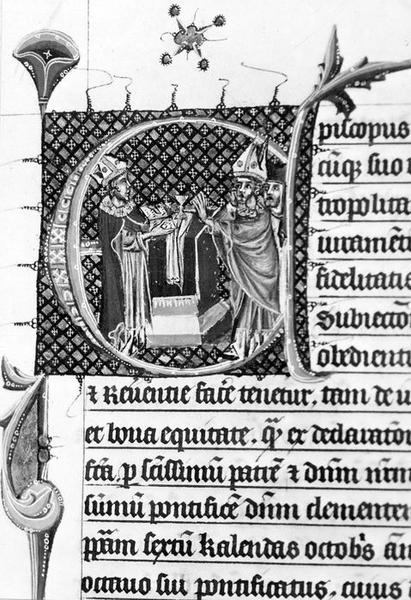 piscopus
cūq; suo
tropolita
iuramēt
fidelitatis
Subiectōn
obedienti
⁊ Reuentie facē tenetur. tam de u
et bona equitate. q̄ ex declaratōn
fcā p scissimū patrē ⁊ dnm nrm
sūmū pontificē dnm clementem
ppām sextū kalendas octobs an
octauo sui pontificatus, cuius